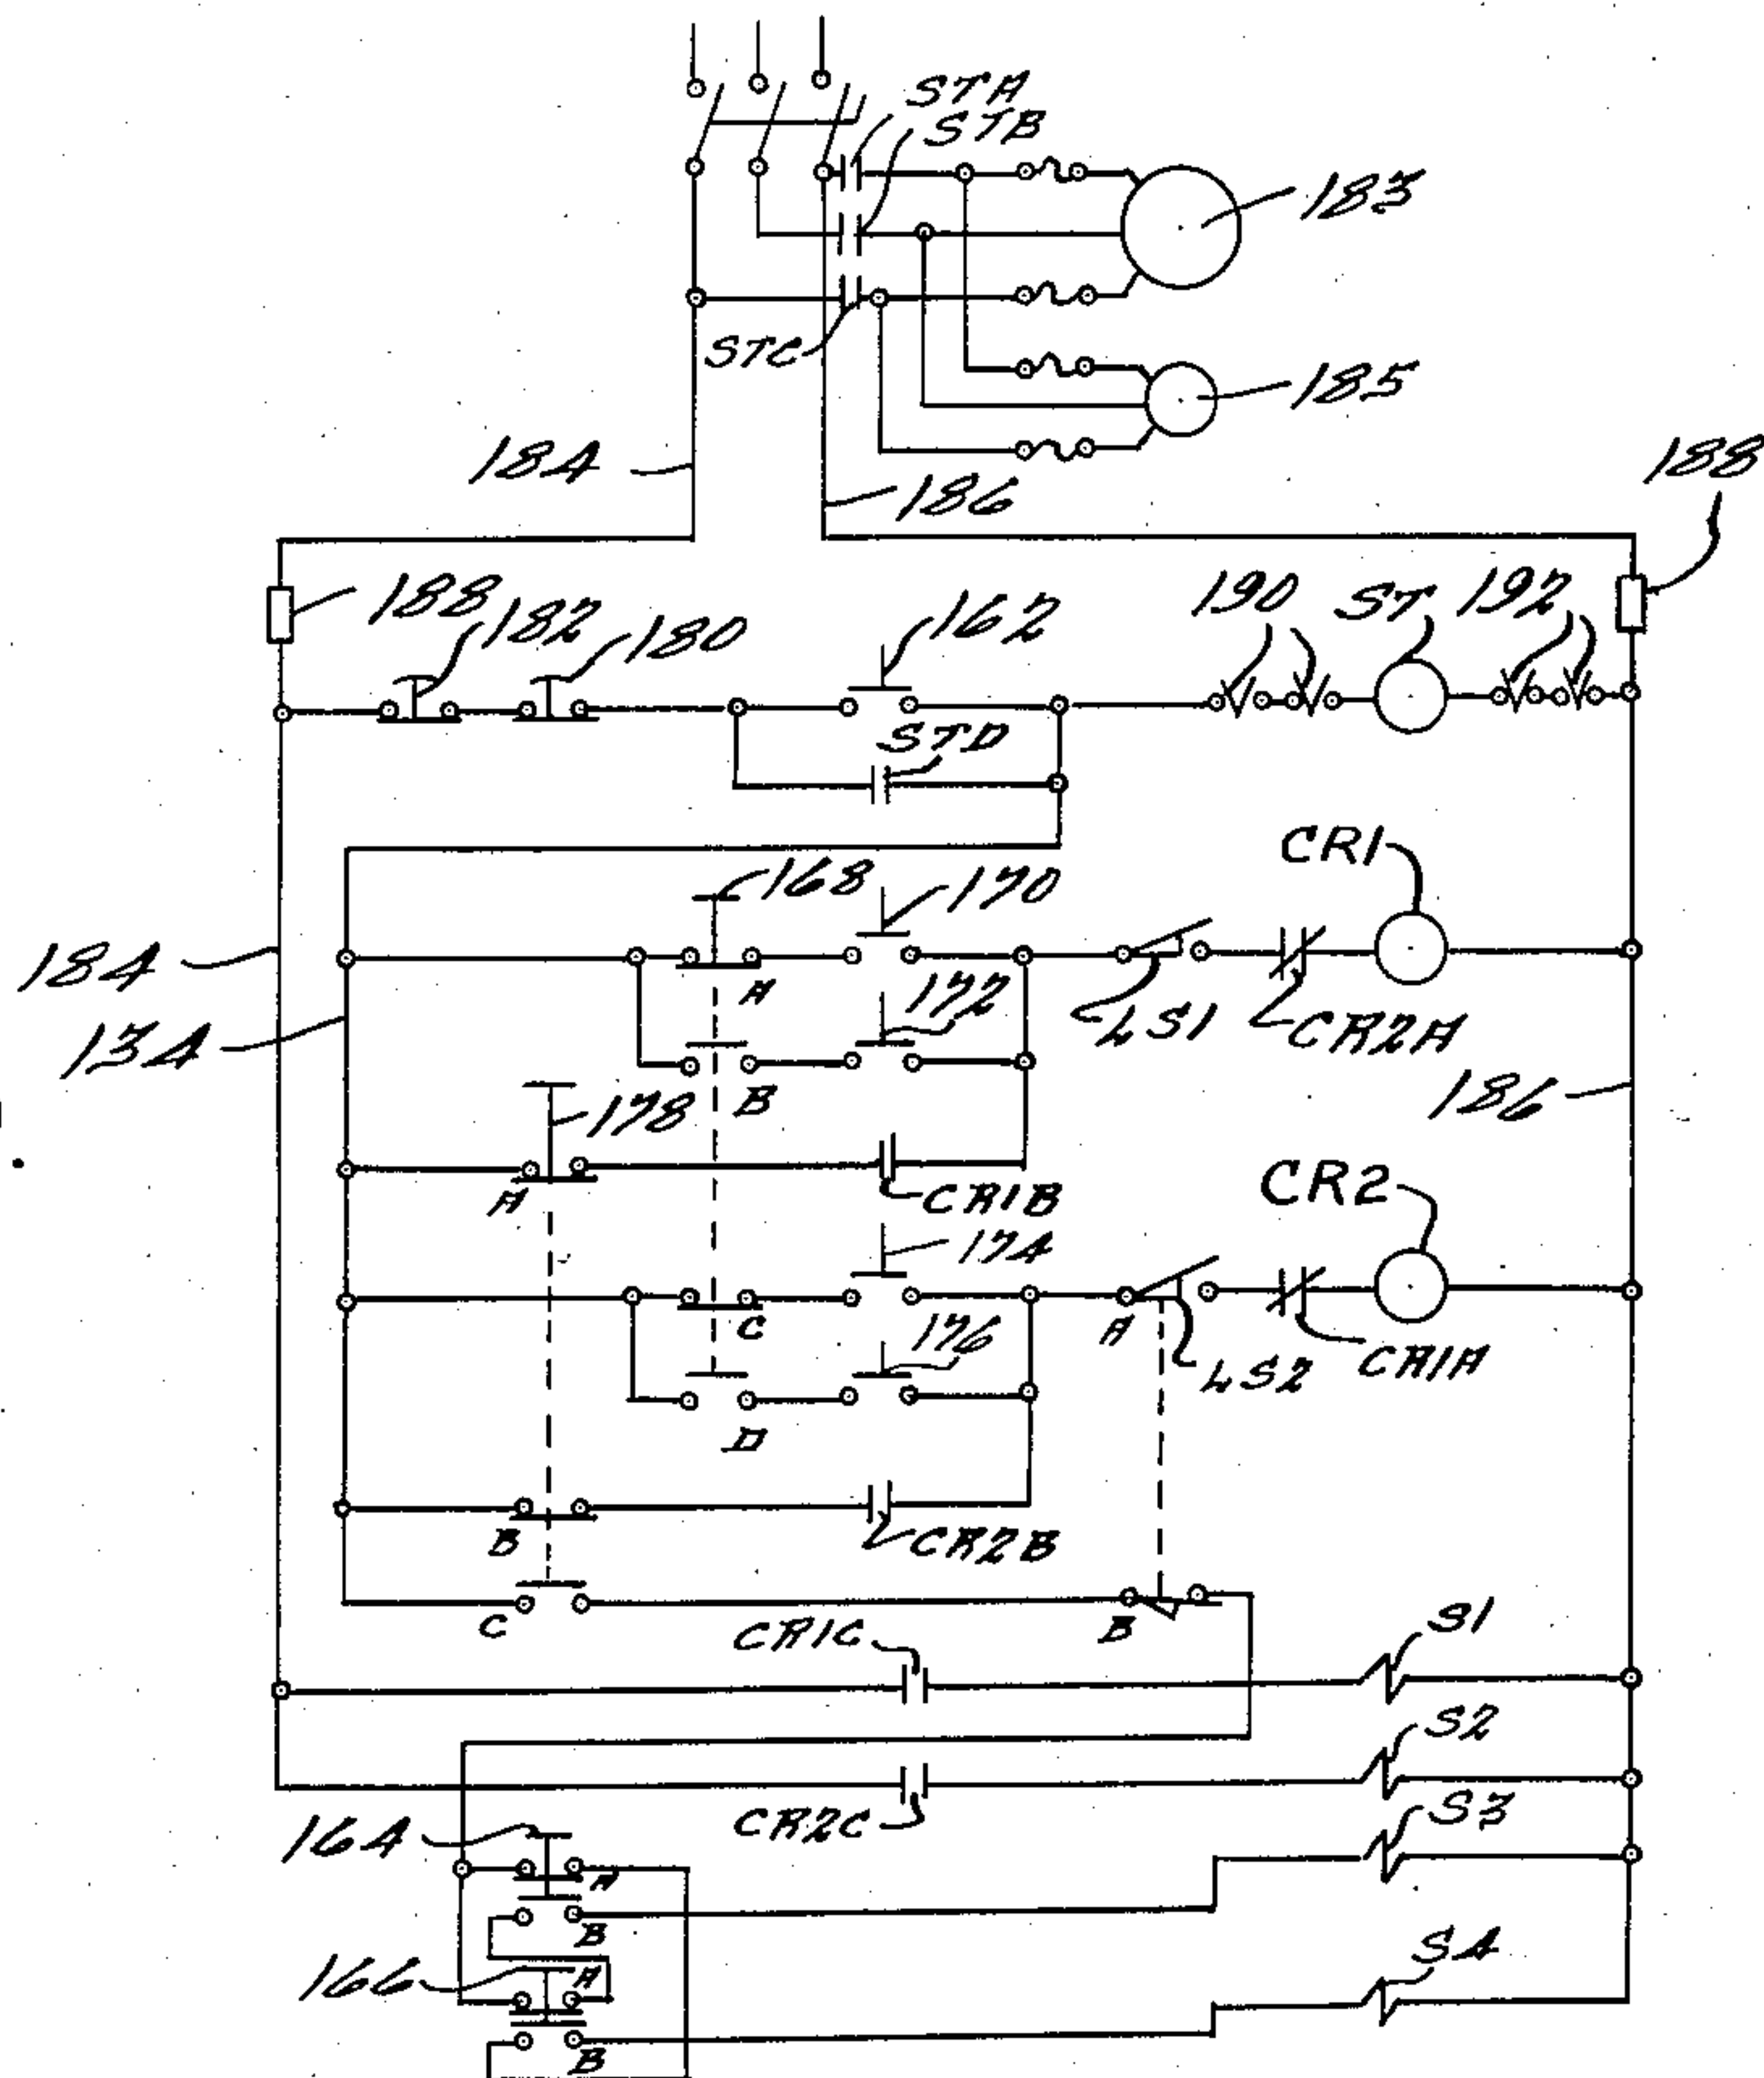 STA
STB
183
STC
185
184
186
188
188
182
180
162
190
ST
192
STD
CR1
168
170
184
A
172
LS1
CR2A
134
B
178
186
A
CR1B
CR2
174
C
176
A
LS2
CR1A
D
B
CR2B
C
CR1C
B
S1
S2
CR2C
S3
164
A
B
166
A
S4
B